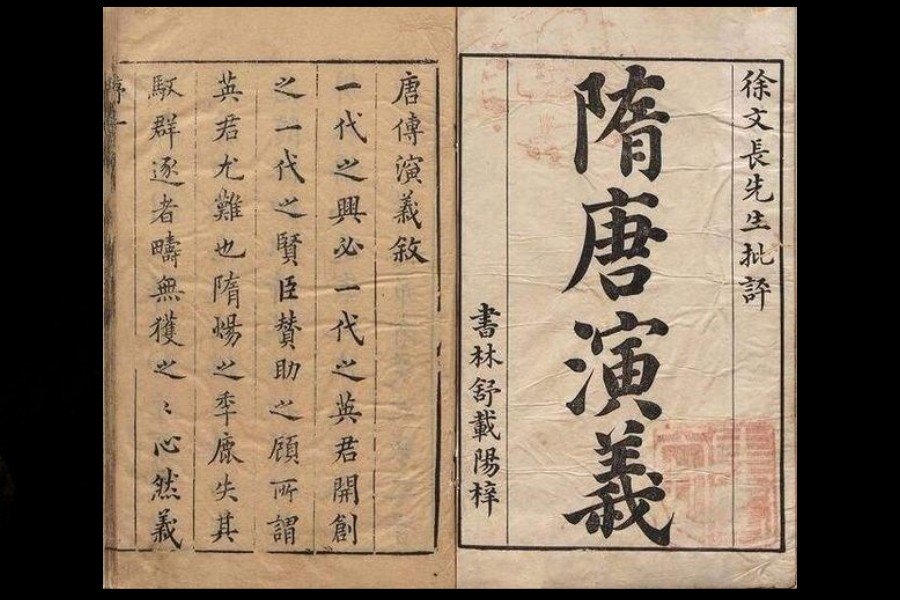 徐文長先生批評
隋唐演義
書林舒載陽梓
唐傳演義敘
一代之興必一代之英君開創
之一代之賢臣贊助之顧所謂
英君尤難也隋煬之季鹿失其
馭群逐者疇無獲之〻心然義
序一